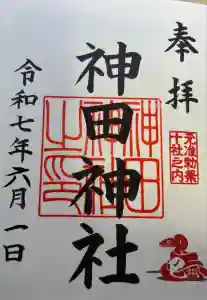 奉拝
元准勅祭
十社之内
神田神社
神田神社之印
令和七年六月一日